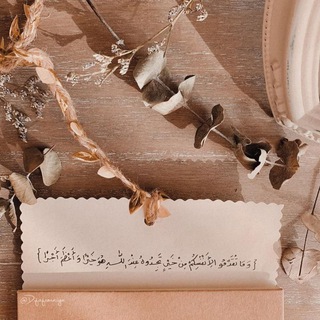 { وَمَا تُقَدِّمُوا لِأَنْفُسِكُمْ مِنْ خَيْرٍ تَجِدُوهُ عِنْدَ اللَّهِ هُوَ خَيْرًا وَأَعْظَمَ أَجْرًا }